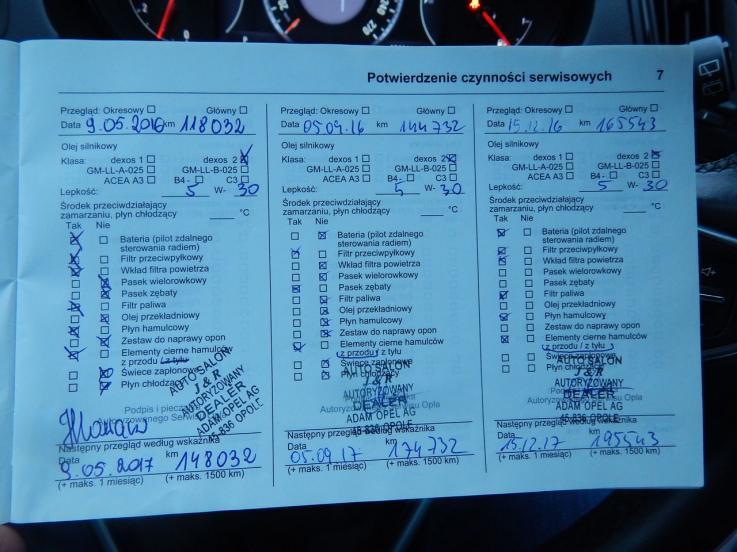 Potwierdzenie czynności serwisowych 7
Przegląd: Okresowy Główny
Data 9.05.2016 km 118032
Olej silnikowy
Klasa: dexos 1 dexos 2
GM-LL-A-025 GM-LL-B-025
ACEA A3 B4- C3
Lepkość: 5 W- 30
Środek przeciwdziałający
zamarzaniu, płyn chłodzący °C
Tak Nie
Bateria (pilot zdalnego
sterowania radiem)
Filtr przeciwpyłkowy
Wkład filtra powietrza
Pasek wielorowkowy
Pasek zębaty
Filtr paliwa
Olej przekładniowy
Płyn hamulcowy
Zestaw do naprawy opon
Elementy cierne hamulców
z przodu / z tyłu
Świece zapłonowe
Płyn chłodzący
AUTO SALON
J & R
AUTORYZOWANY
DEALER
ADAM OPEL AG
836 OPOLE
Podpis i
Następny przegląd według wskaźnika
Data km
9.05.2017 148032
(+ maks. 1 miesiąc) (+ maks. 1500 km)
Przegląd: Okresowy Główny
Data 05.09.16 km 144732
Olej silnikowy
Klasa: dexos 1 dexos 2
GM-LL-A-025 GM-LL-B-025
ACEA A3 B4- C3
Lepkość: 5 W- 30
Środek przeciwdziałający
zamarzaniu, płyn chłodzący °C
Tak Nie
Bateria (pilot zdalnego
sterowania radiem)
Filtr przeciwpyłkowy
Wkład filtra powietrza
Pasek wielorowkowy
Pasek zębaty
Filtr paliwa
Olej przekładniowy
Płyn hamulcowy
Zestaw do naprawy opon
Elementy cierne hamulców
z przodu / z tyłu
Świece zapłonowe
Płyn chłodzący
AUTO SALON
J & R
AUTORYZOWANY
DEALER
ADAM OPEL AG
45-836 OPOLE
Następny przegląd według wskaźnika
Data km
05.09.17 174732
(+ maks. 1 miesiąc) (+ maks. 1500 km)
Przegląd: Okresowy Główny
Data 15.12.16 km 165543
Olej silnikowy
Klasa: dexos 1 dexos 2
GM-LL-A-025 GM-LL-B-025
ACEA A3 B4- C3
Lepkość: 5 W- 30
Środek przeciwdziałający
zamarzaniu, płyn chłodzący °C
Tak Nie
Bateria (pilot zdalnego
sterowania radiem)
Filtr przeciwpyłkowy
Wkład filtra powietrza
Pasek wielorowkowy
Pasek zębaty
Filtr paliwa
Olej przekładniowy
Płyn hamulcowy
Zestaw do naprawy opon
Elementy cierne hamulców
z przodu / z tyłu
Świece zapłonowe
Płyn chłodzący
AUTO SALON
J & R
AUTORYZOWANY
DEALER
ADAM OPEL AG
45-836 OPOLE
Następny przegląd według wskaźnika
Data km
15.12.17 195543
(+ maks. 1 miesiąc) (+ maks. 1500 km)